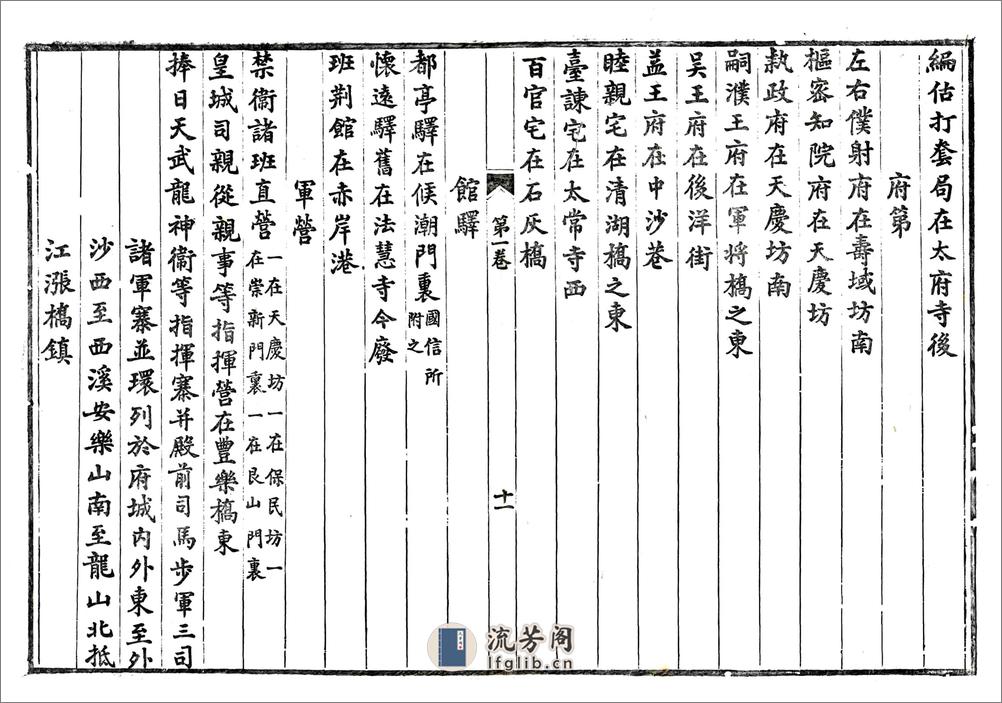 編估打套局在太府寺後
府第
左右僕射府在壽域坊南
樞密知院府在天慶坊
執政府在天慶坊南
嗣濮王府在軍將橋之東
吳王府在後洋街
益王府在中沙巷
睦親宅在清湖橋之東
臺諫宅在太常寺西
百官宅在石灰橋
第一卷
十一
館驛
都亭驛在候潮門裏國信所
附之
懷遠驛舊在法慧寺今廢
班荆館在赤岸港
軍營
禁衞諸班直營一在天慶坊一在保民坊一
在崇新門裏一在艮山門裏
皇城司親從親事等指揮營在豐樂橋東
捧日天武龍神衞等指揮寨并殿前司馬步軍三司
諸軍寨並環列於府城內外東至外
沙西至西溪安樂山南至龍山北抵
江漲橋鎮
流芳阁
lfglib.cn